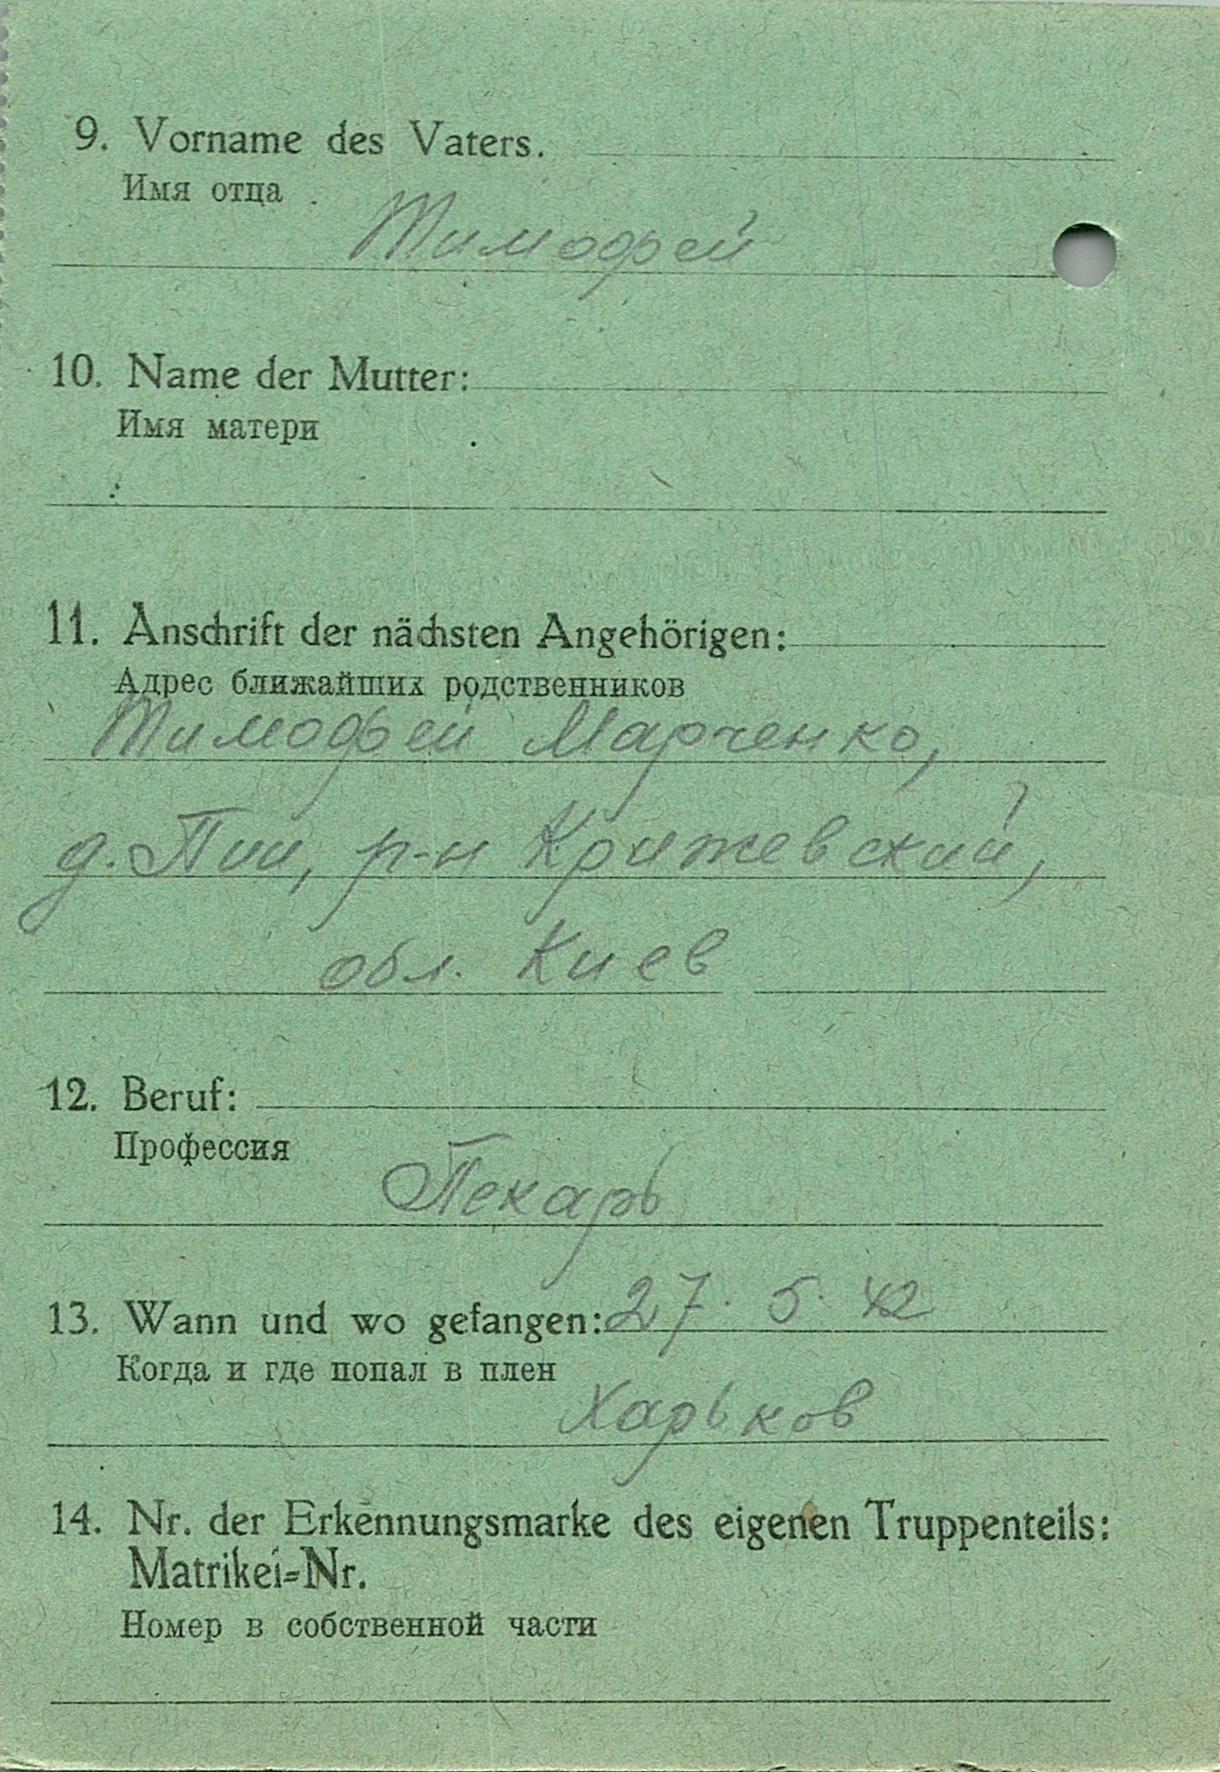 9. Vorname des Vaters.
Имя отца
Тимофей
10. Name der Mutter:
Имя матери
11. Anschrift der nächsten Angehörigen:
Адрес ближайших родственников
Тимофей Марченко,
д. Пии, р-н Крижевский,
обл. Киев
12. Beruf:
Профессия
Пекарь
13. Wann und wo gefangen: 27. 5. 42
Когда и где попал в плен
Харьков
14. Nr. der Erkennungsmarke des eigenen Truppenteils:
Matrikei=Nr.
Номер в собственной части